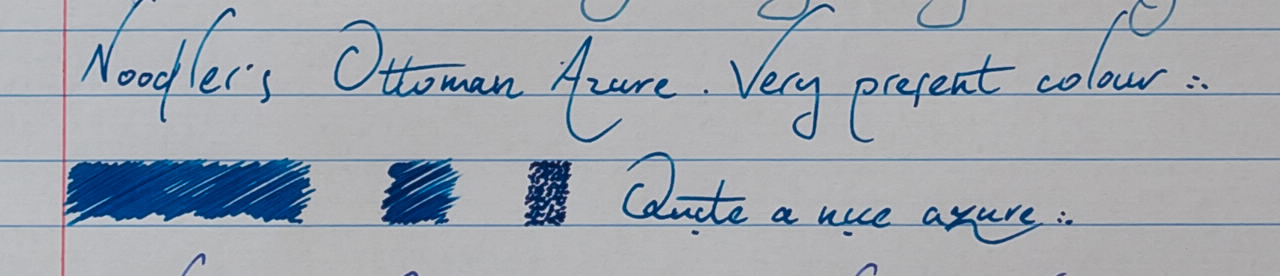 Noodler's Ottoman Azure. Very present colour :.
Quite a nice azure :.